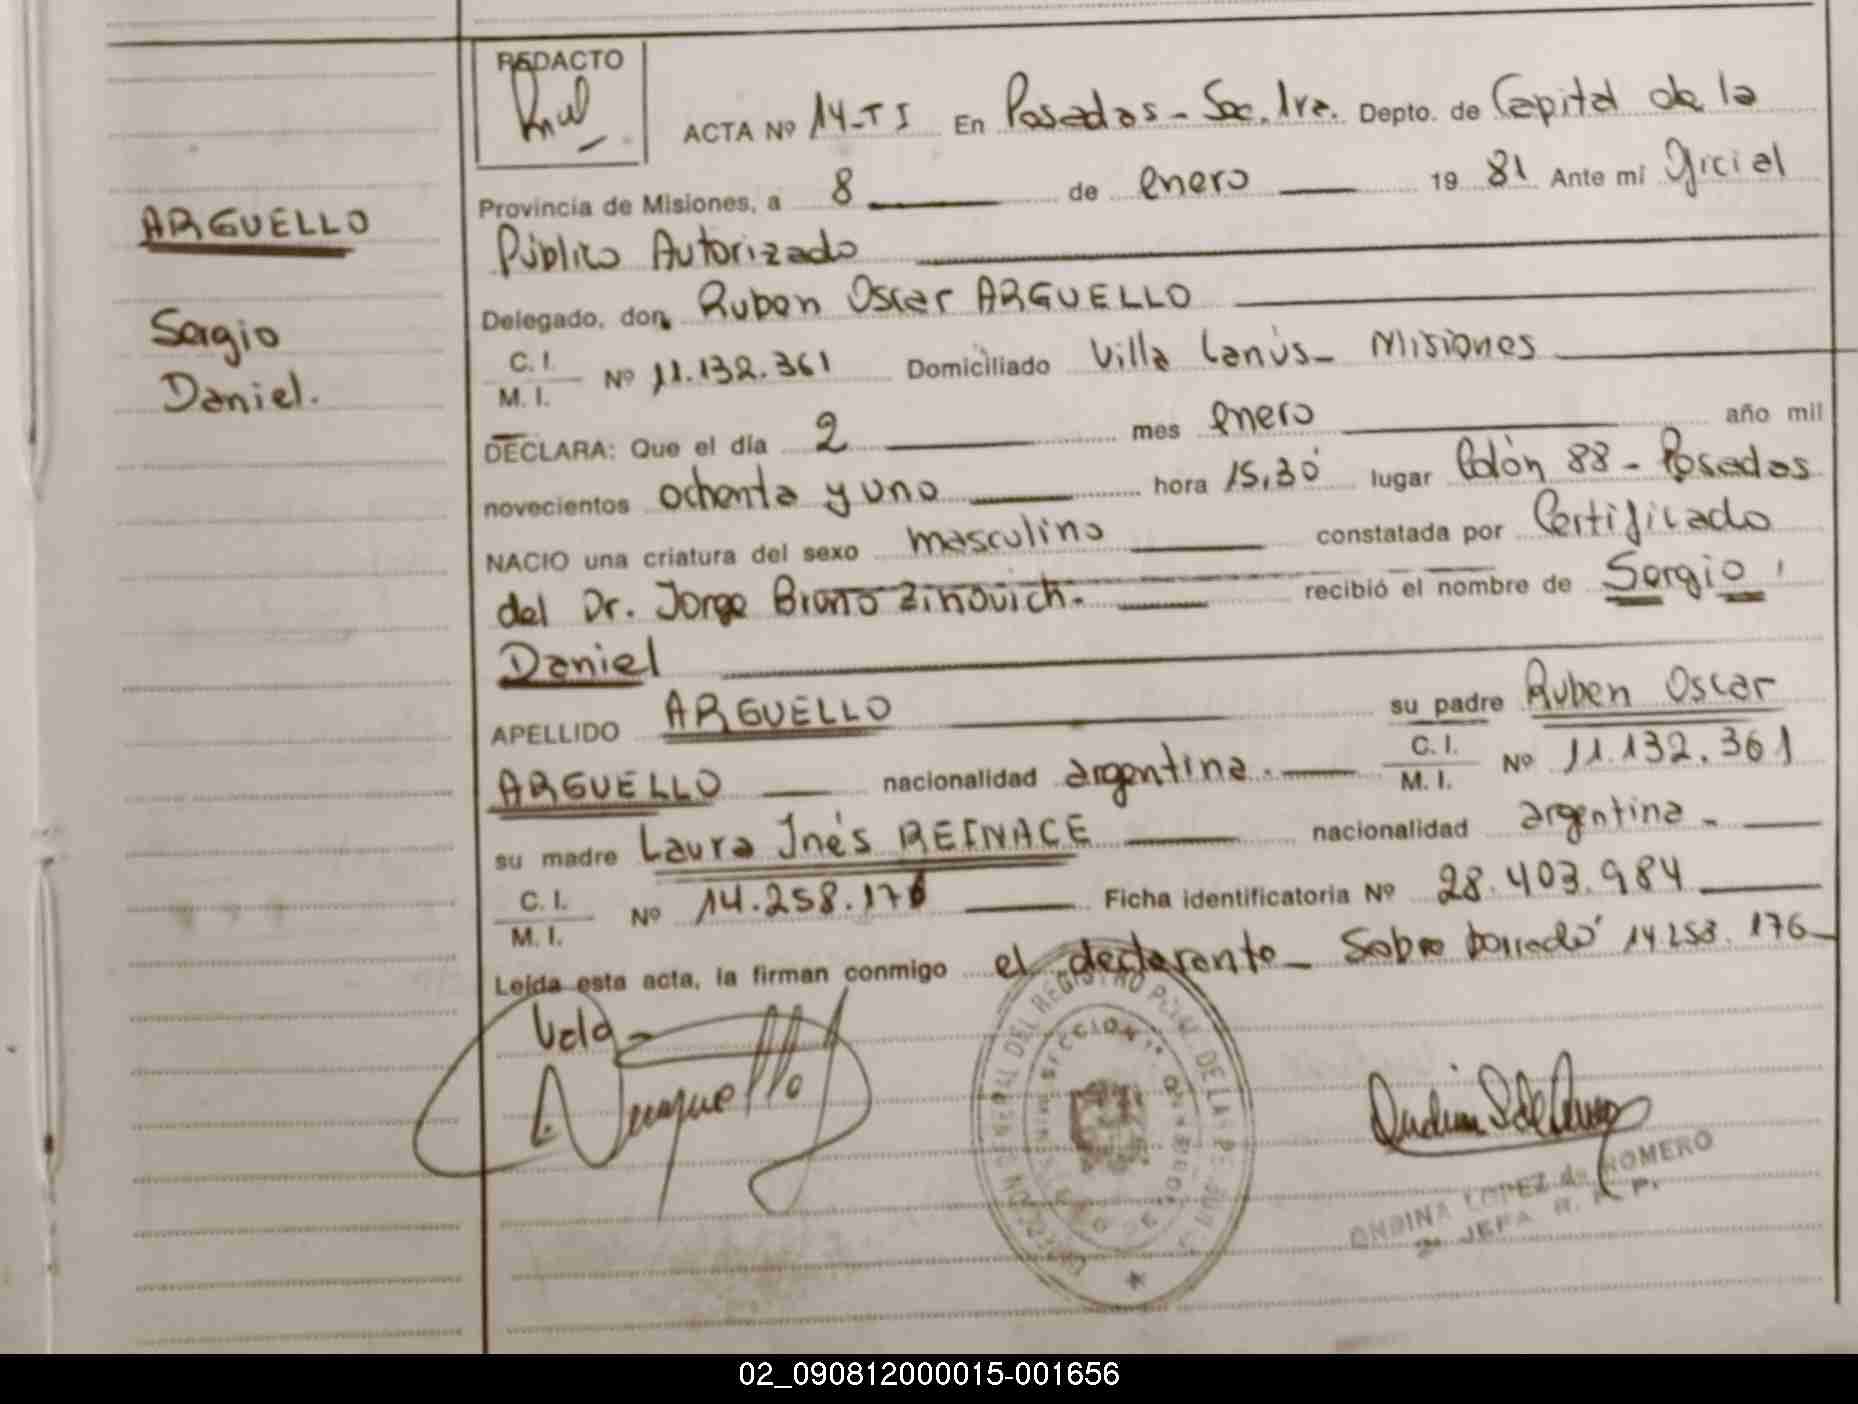 REDACTO
ACTA Nº 14-TI En Posadas - Sec. 1ra. Depto. de Capital de la
Provincia de Misiones, a 8 de enero 19 81 Ante mi Oficial
Público Autorizado
ARGUELLO
Delegado, don Ruben Oscar ARGUELLO
Sergio
C. I.
M. I. Nº 11.132.361 Domiciliado Villa Lanús - Misiones
Daniel.
DECLARA: Que el día 2 mes enero año mil
novecientos ochenta y uno hora 15,30 lugar Colón 88 - Posadas
NACIO una criatura del sexo masculino constatada por Certificado
del Dr. Jorge Bruno Zinovich. recibió el nombre de Sergio
Daniel
APELLIDO ARGUELLO su padre Ruben Oscar
ARGUELLO nacionalidad argentina. C. I.
M. I. Nº 11.132.361
su madre Laura Inés REINACE nacionalidad argentina -
C. I.
M. I. Nº 14.258.176 Ficha identificatoria Nº 28.403.984
Leída esta acta, la firman conmigo el declarante - Sobre borrado 14.258.176-
Vale -
DIRECCION GENERAL DEL REGISTRO DE LAS PERSONAS
SECCION 1ª
ONDINA LOPEZ de ROMERO
JEFA R. P.
02_090812000015-001656